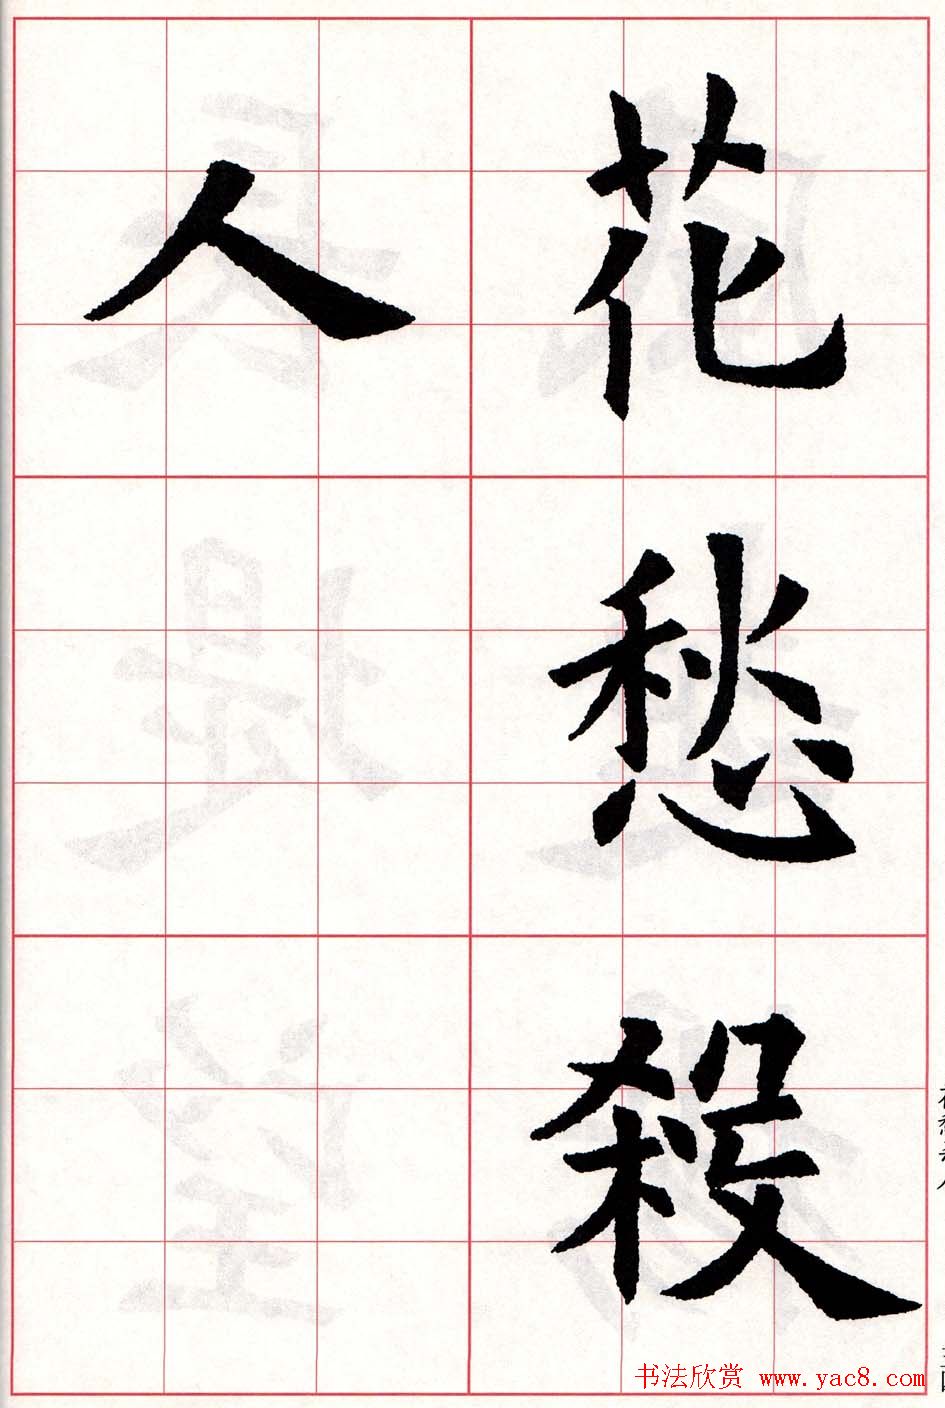 花愁殺
人
书法欣赏 www.yac8.com